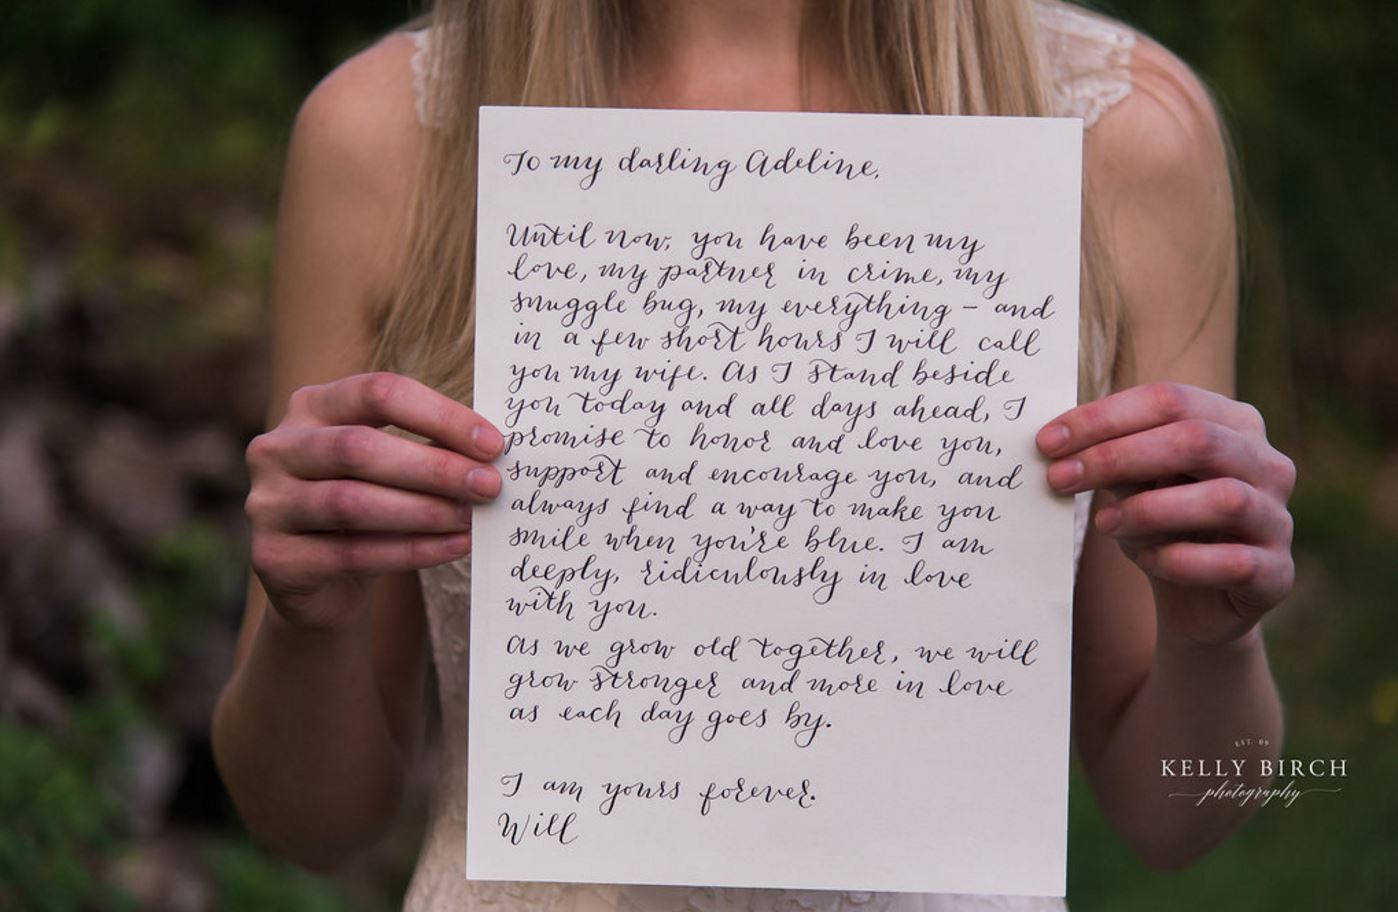 To my darling Adeline,
Until now, you have been my
love, my partner in crime, my
snuggle bug, my everything – and
in a few short hours I will call
you my wife. As I stand beside
you today and all days ahead, I
promise to honor and love you,
support and encourage you, and
always find a way to make you
smile when you're blue. I am
deeply, ridiculously in love
with you.
As we grow old together, we will
grow stronger and more in love
as each day goes by.
I am yours forever.
Will
EST. 09
KELLY BIRCH
photography